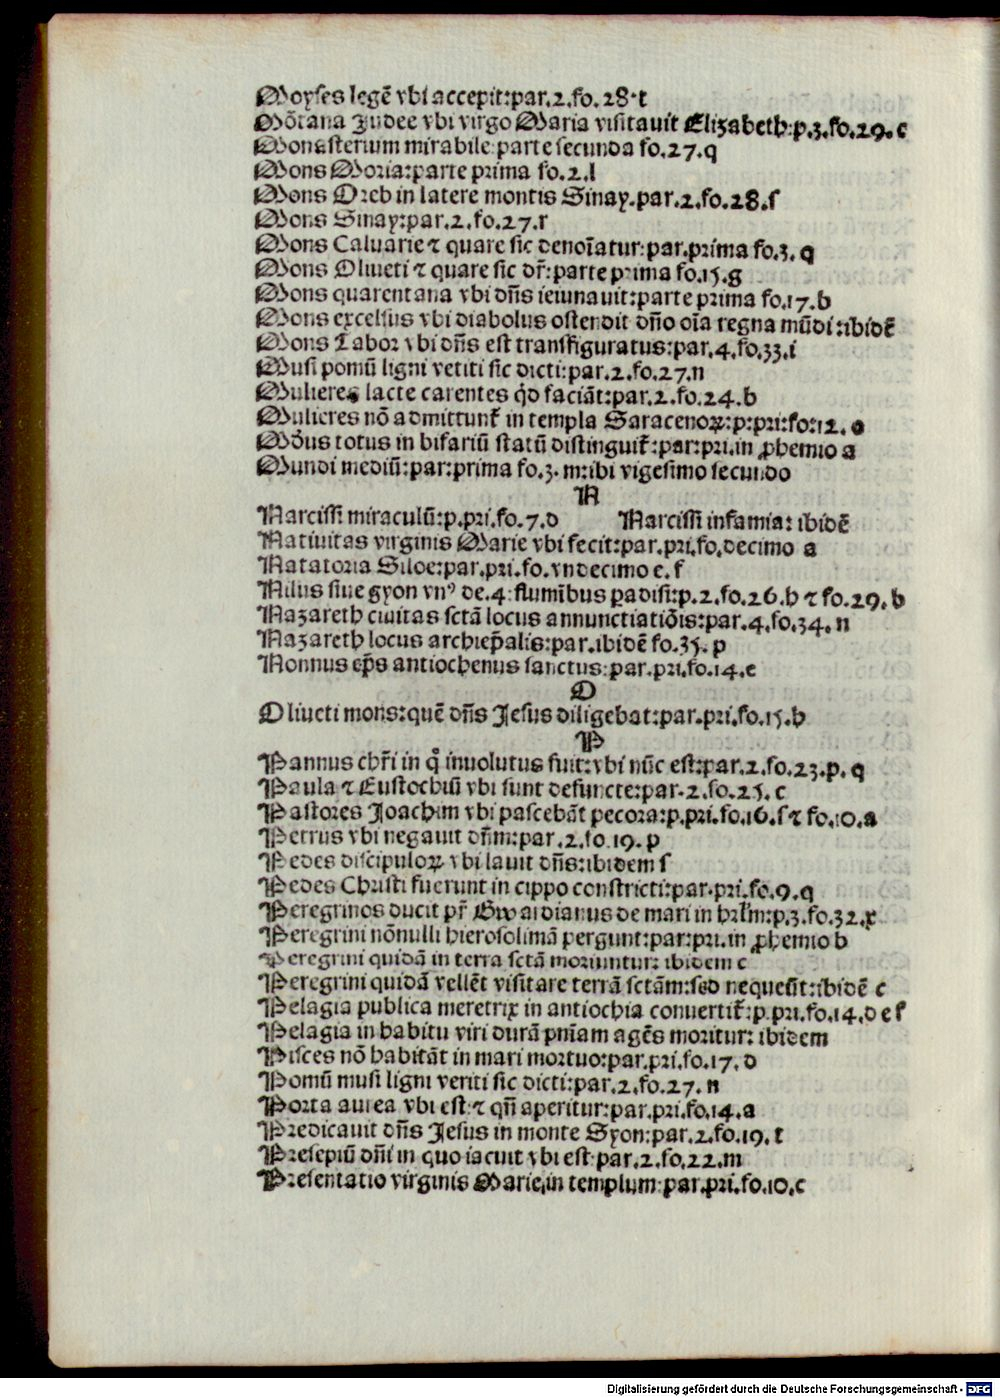 Moyses legē vbi accepit:par.2.fo.28.t
Mōtana Judee vbi virgo Maria visitauit Elizabeth:p.3.fo.29.c
Monasterium mirabile:parte secunda fo.27.q
Mons Moria:parte prima fo.2.l
Mons Oreb in latere montis Sinay.par.2.fo.28.s
Mons Sinay:par.2.fo.27.r
Mons Caluarie ⁊ quare sic denoīatur:par.prima fo.3.q
Mons Oliueti ⁊ quare sic dr̄:parte prima fo.15.g
Mons quarentana vbi dn̄s ieiunauit:parte prima fo.17.b
Mons excelsus vbi diabolus ostendit dn̄o oīa regna mūdi:ibidē
Mons Tabor vbi dn̄s est transfiguratus:par.4.fo.33.i
Musi pomū ligni vetiti sic dicti:par.2.fo.27.n
Mulieres lacte carentes qd̄ faciāt:par.2.fo.24.b
Mulieres nō admittunt᷑ in templa Saracenoꝝ:p:pri:fo:12.o
Mōus totus in bifariū statū distinguit᷑:par:pri.in ꝓhemio a
Mundi mediū:par:prima fo.3.m:ibi vigesimo secundo
N
Narcissi miraculū:p.pri.fo.7.d Narcissi infamia: ibidē
Natiuitas virginis Marie vbi fecit:par.pri.fo.decimo a
Natatoria Siloe:par.pri.fo.vndecimo e.f
Nilus siue gyon vnꝰ de.4:flumībus ꝑadisi:p.2.fo.26.h ⁊ fo.29.b
Nazareth ciuitas sctā locus annunctiatiōis:par.4.fo.34.n
Nazareth locus archiep̄alis:par.ibidē fo.35.p
Nonnus ep̄s antiochenus sanctus:par.pri.fo.14.e
O
Oliueti mons:quē dn̄s Jesus diligebat:par.pri.fo.15.h
P
Pannus chr̄i in q̊ inuolutus fuit:vbi nūc est:par.2.fo.23.p.q
Paula ⁊ Eustochiū vbi sunt defuncte:par.2.fo.25.c
Pastores Joachim vbi pascebāt pecora:p.pri.fo.16.s ⁊ fo.10.a
Petrus vbi negauit dn̄m:par.2.fo.19.p
Pedes discipuloꝝ vbi lauit dn̄s:ibidem s
Pedes Christi fuerunt in cippo constricti:par.pri.fo.9.q
Peregrinos ducit pr̄ Gwardianus de mari in hrl̄m:p.3.fo.32.x
Peregrini nōnulli hierosolimā pergunt:par:pri.in ꝓhemio b
Peregrini quidā in terra sctā moriuntur: ibidem c
Peregrini quidā vellēt visitare terrā sctām:sed nequeūt:ibidē c
Pelagia publica meretrix in antiochia conuertit᷑:p.pri.fo.14.d e f
Pelagia in habitu viri durā pn̄iam agēs moritur: ibidem
Pisces nō habitāt in mari mortuo:par.pri.fo.17.d
Pomū musi ligni veriti sic dicti:par.2.fo.27.n
Porta aurea vbi est:⁊ qn̄ aperitur:par.pri.fo.14.a
Predicauit dn̄s Jesus in monte Syon:par.2.fo.19.t
Presepiū dn̄i in quo iacuit vbi est:par.2.fo.22.m
Presentatio virginis Marie,in templum:par.pri.fo.10.c
Digitalisierung gefördert durch die Deutsche Forschungsgemeinschaft - DFG